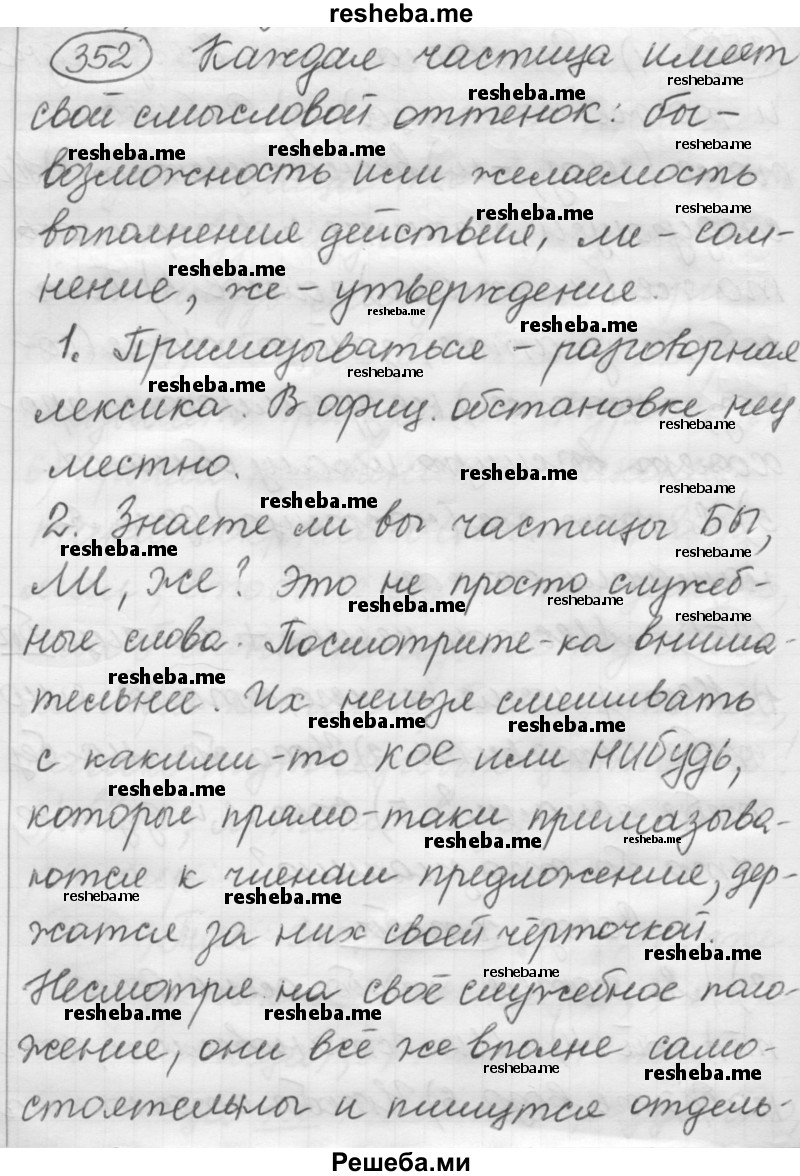 resheba.me
352 Каждая частица имеет
свой смысловой оттенок: бы –
возможность или желаемость
выполнения действия, ли – сом-
нение, же – утверждение.
1. Примазываться – разговорная
лексика. В офиц. обстановке неу
местно.
2. Знаете ли вы частицы БЫ,
ЛИ, же? Это не просто служеб-
ные слова. Посмотрите-ка внима-
тельнее. Их нельзя смешивать
с какими-то КОЕ или НИБУДЬ,
которые прямо-таки примазыва-
ются к членам предложения, дер-
жатся за них своей чёрточкой.
Несмотря на своё служебное поло-
жение, они всё же вполне само-
стоятельны и пишутся отдель-
Решеба.ми